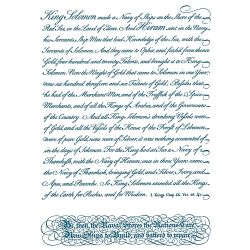 King Solomon made a Navy of Ships on the Shore of the
Red Sea, in the Land of Edom. And Hiram sent in the Navy
his Servants, Ship Men that had Knowledge of the Sea, with the
Servants of Solomon. And they came to Ophir, and fetch'd from thence
Gold, four hundred and twenty Talents, and brought it to King
Solomon. Now the Weight of Gold that came to Solomon in one Year,
was six hundred threescore and six Talents of Gold, Besides that
he had of the Merchant Men, and of the Traffick of the Spice
Merchants, and of all the Kings of Arabia, and of the Governours
of the Country. And all King Solomon's drinking Vessels were
of Gold, and all the Vessels of the House of the Forest of Lebanon
were of pure Gold, none were of Silver, it was nothing accounted of
in the days of Solomon. For the King had at Sea a Navy of
Tharshish, with the Navy of Hiram, once in three Years came
the Navy of Tharshish, bringing Gold, and Silver, Ivory, and
Apes, and Peacocks. So King Solomon exceeded all the Kings of
the Earth for Riches, and for Wisdom. I. Kings Chap. IX. Ver. 26. &c.
the Naval Stores the Nations
New Ships to Build, and batter'd to repair